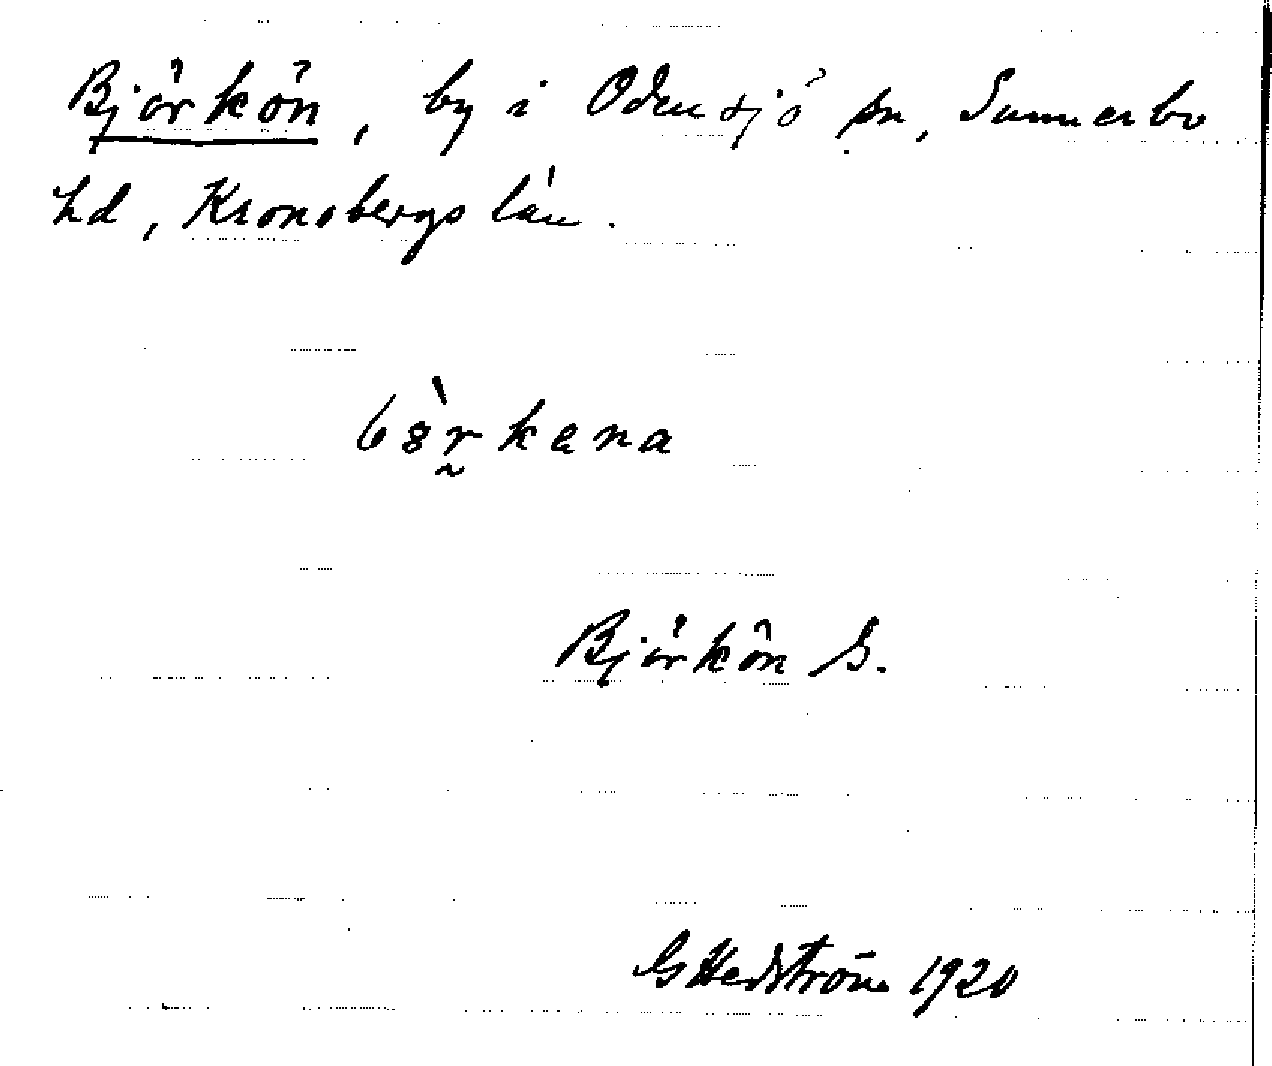 Björkön, by i Odensjö sn, Sunnerbo
hd, Kronobergs län.
b8̀r̰kena
Björkön G.
G Hedström 1920